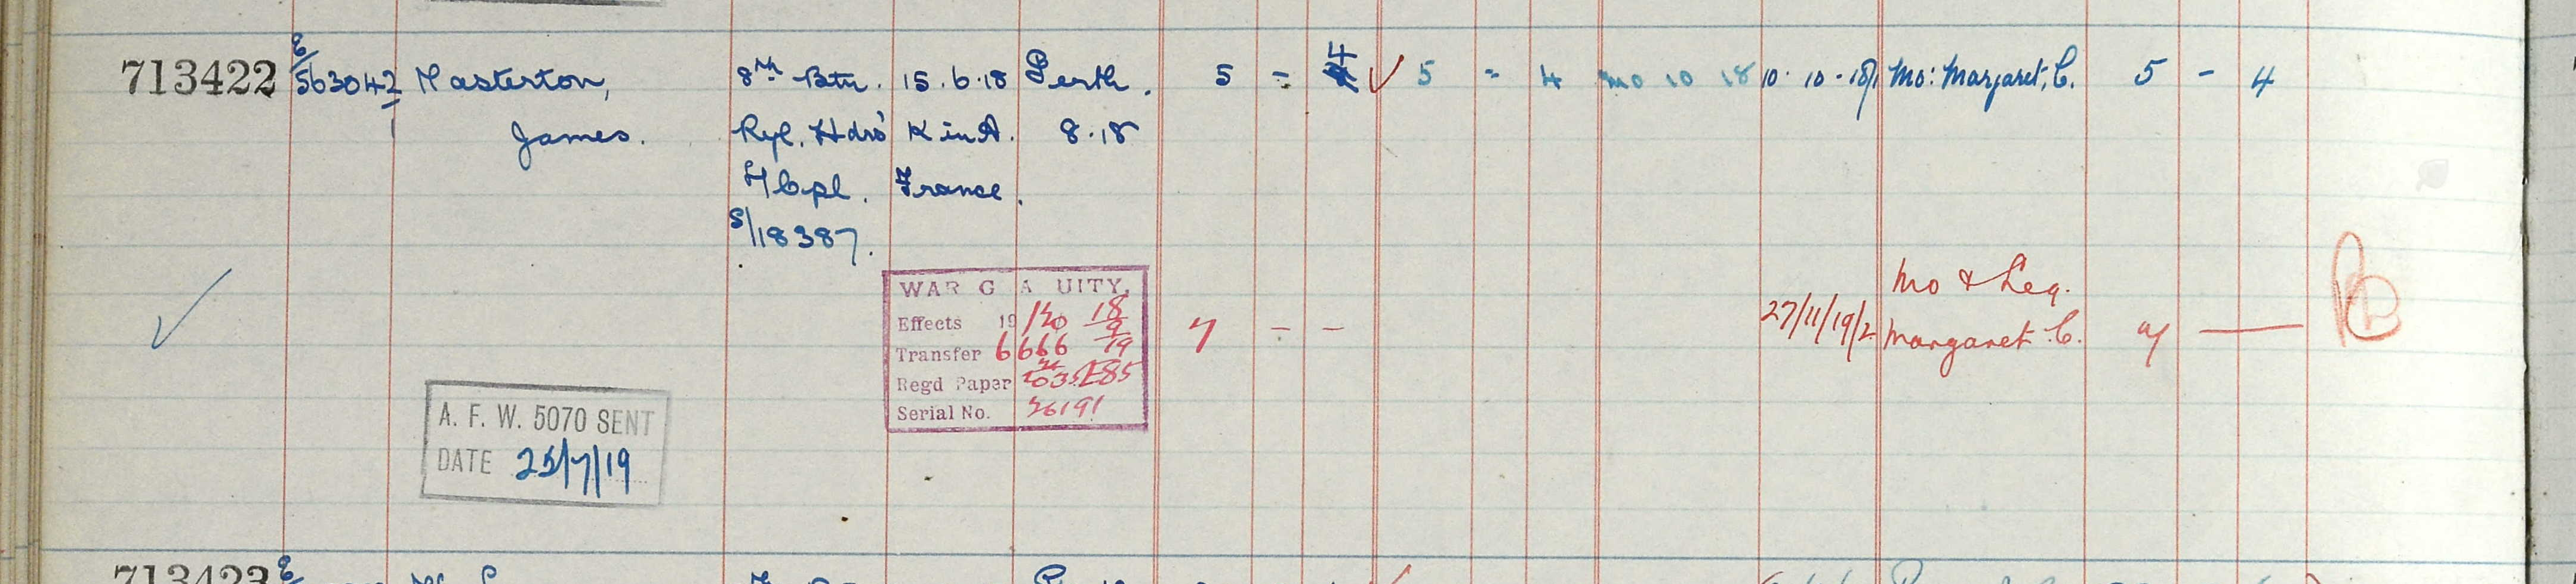 713422 E/ 563042/1 Masterton, 8th Btn. 15.6.18 Perth. 5 = 4 ✓ 5 = 4 Mo 10 18 10. 10 - 18 Mo: Margaret, C. 5 - 4
James. Ryl. Hdrs' K in A. 8.18
L/Cpl. France.
S/18387.
WAR G A UITY,
Effects 19/20 18/9/19
Transfer 6666
Regd Paper
Serial No. 26191
7 - - 27/11/19 Mo & Leg. Margaret C. 7 —
A. F. W. 5070 SENT
DATE 25/7/19
713423 E/